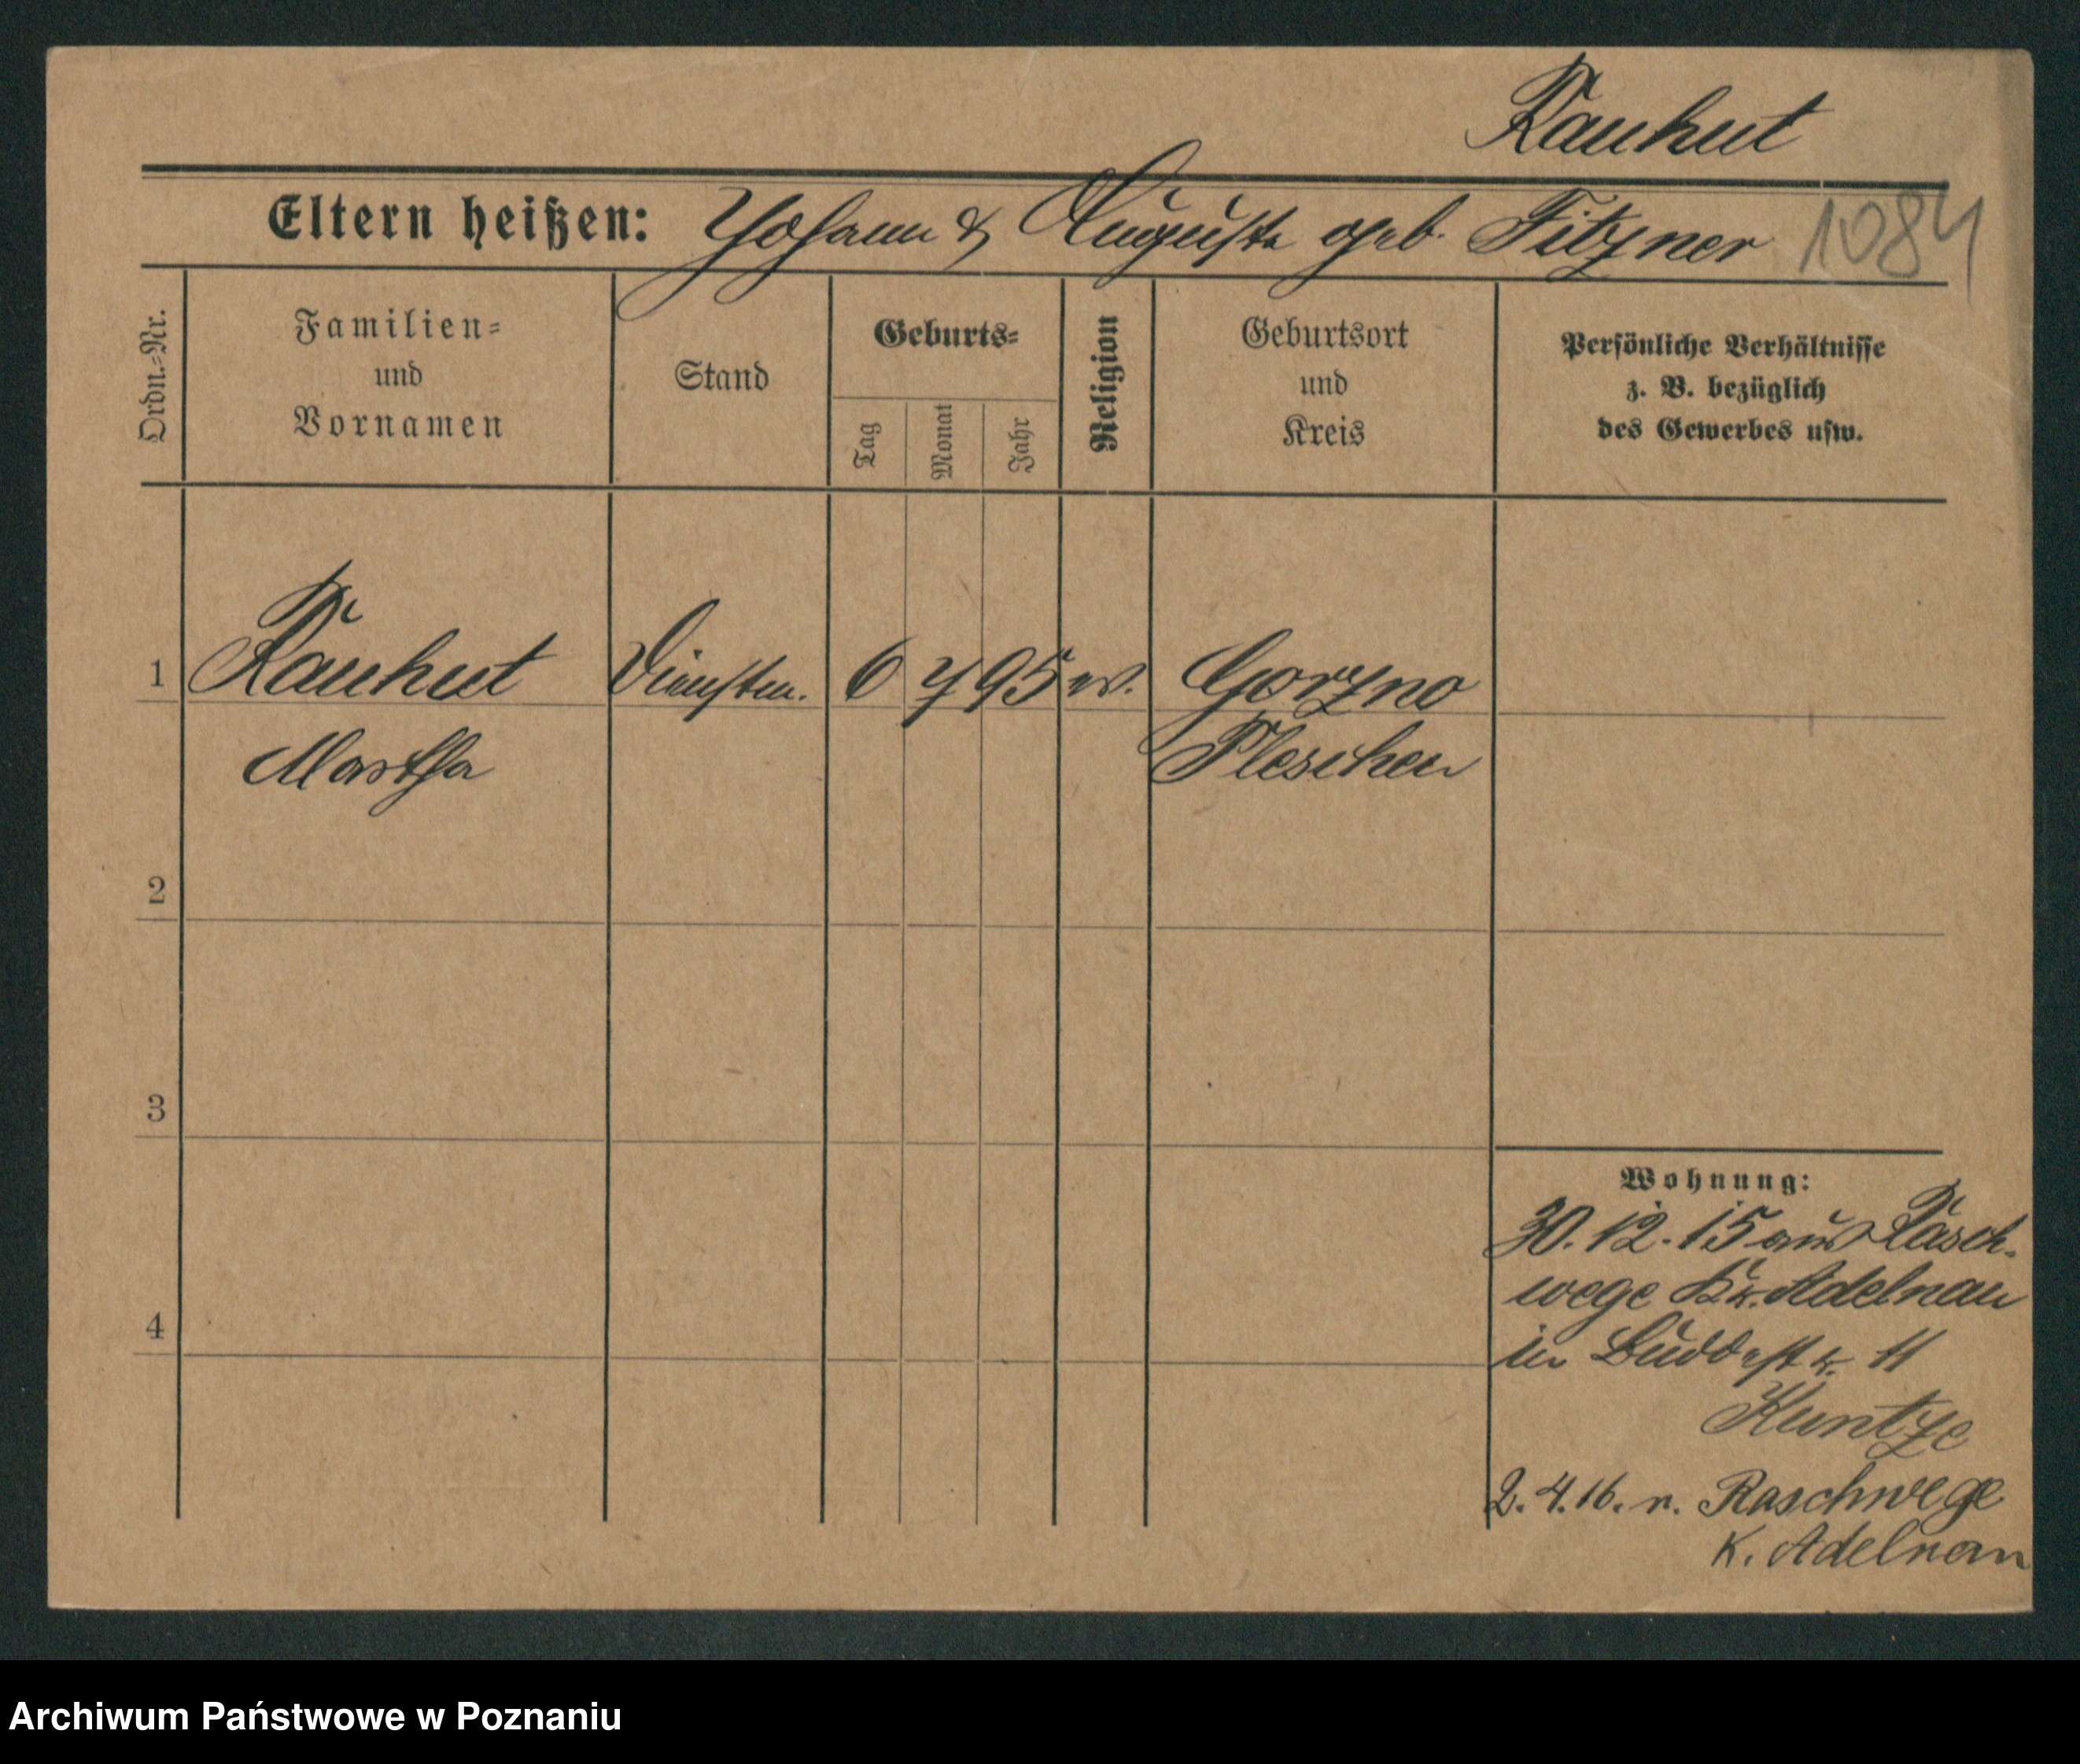 Rauhut
Eltern heißen: Johann & Auguste geb. Fitzner 1084
Ordn.-Nr.
Familien-
und
Vornamen
Stand
Geburts-
Tag
Monat
Jahr
Religion
Geburtsort
und
Kreis
Persönliche Verhältnisse
z. B. bezüglich
des Gewerbes usw.
1 Rauhut Dienstm. 6 7 95 ev. Gorzno
Martha Pleschen
2
3
4
Wohnung:
30. 12. 15 aus Rasch-
wege Kr. Adelnau
in Buddestr. 11
Kuntze
2. 4. 16. n. Raschwege
K. Adelnau
Archiwum Państwowe w Poznaniu